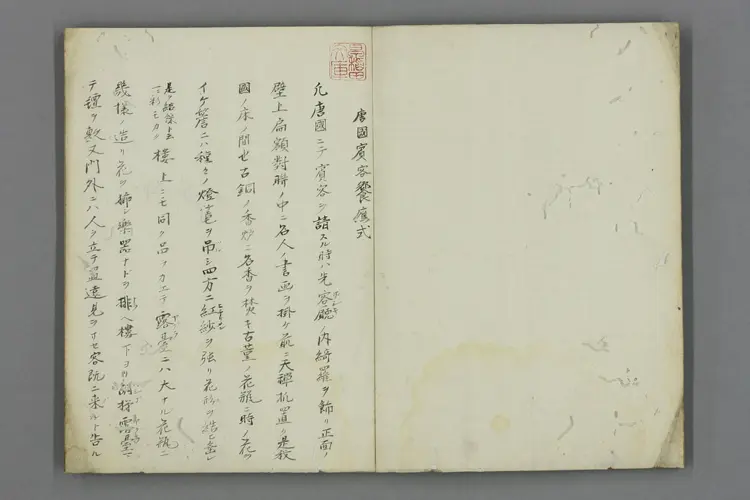 唐國賓客饗應式
凡唐國ニテ賓客ヲ請スル時ハ先客廳ノ内綺羅ヲ飾リ正面ノ
壁上扁額對聯ノ中ニ名人ノ書画ヲ掛ケ前ニ天禪机置ク是我
國ノ床ノ間也古銅ノ香炉ニ名香ヲ焚キ古董ノ花瓶ニ時ノ花ヲ
イケ ニハ種々ノ燈籠ヲ吊シ四方ニ紅紗ヲ張リ花形ヲ結ヒ垂レ
是ヲ結綵ト云
樓上ニモ同ク品ヲカエテ露臺ニハ大ナル花瓶ニ
幾様ノ造リ花ヲ 樂器ナドヲ排ヘ樓下ヨリ 露臺マ
テ氊ヲ敷又門外ニハ人ヲ立テ置遠見ヲナセ客既ニ来ルト告ル